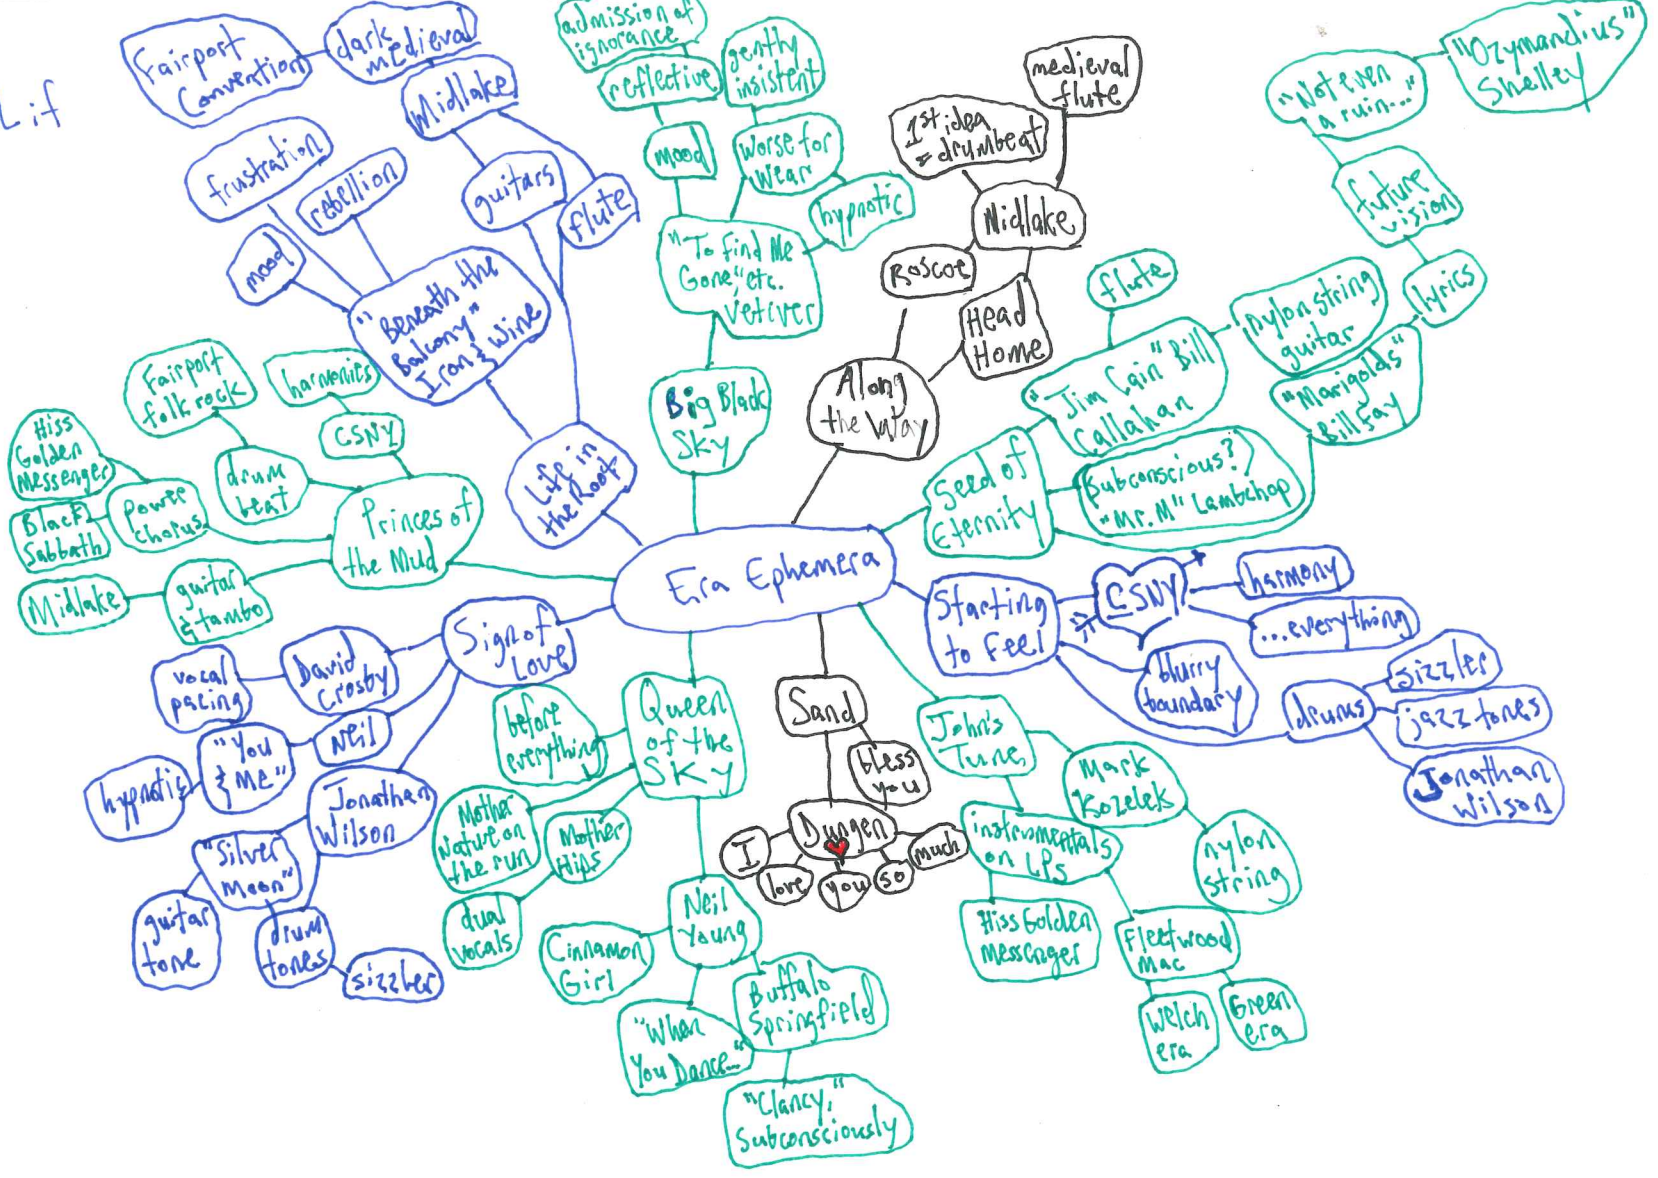 Lif
Fairport
Convention
dark
medieval
Midlake
frustration
rebellion
mood
guitars
flute
"Beneath the
Balcony"
Iron & Wine
Life in
the Root
admission of
ignorance
reflective
mood
gently
insistent
Worse for
Wear
hypnotic
"To Find Me
Gone," etc.
Vetiver
Big Black
Sky
medieval
flute
1st idea
= drumbeat
Midlake
Roscoe
Head
Home
Along
the Way
"Ozymandius"
Shelley
"Not even
a ruin..."
future
vision
lyrics
flute
nylon string
guitar
"Jim Cain" Bill
Callahan
"Marigolds"
Bill Fay
Subconscious?
"Mr. M" Lambchop
Seed of
Eternity
Fairport
folk rock
harmonies
CSNY
Hiss
Golden
Messenger
drum
beat
Black
Sabbath
Power
chorus
Princes of
the Mud
Midlake
guitar
& tambo
Era Ephemera
Starting
to Feel
CSNY
harmony
...everything
blurry
boundary
drums
sizzler
jazz tones
Jonathan
Wilson
Sign of
Love
David
Crosby
vocal
pacing
Neil
"You
& Me"
hypnotic
Jonathan
Wilson
"Silver
Moon"
guitar
tone
drum
tones
sizzler
Queen
of the
Sky
before
everything
Mother
Nature on
the run
Mother
Hips
dual
vocals
Neil
Young
Cinnamon
Girl
"When
You Dance..."
Buffalo
Springfield
"Clancy,"
Subconsciously
Sand
bless
you
Dungen
I
love
you
so
much
John's
Tune
Mark
Kozelek
nylon
string
instrumentals
on LPs
Hiss Golden
Messenger
Fleetwood
Mac
Welch
era
Green
era